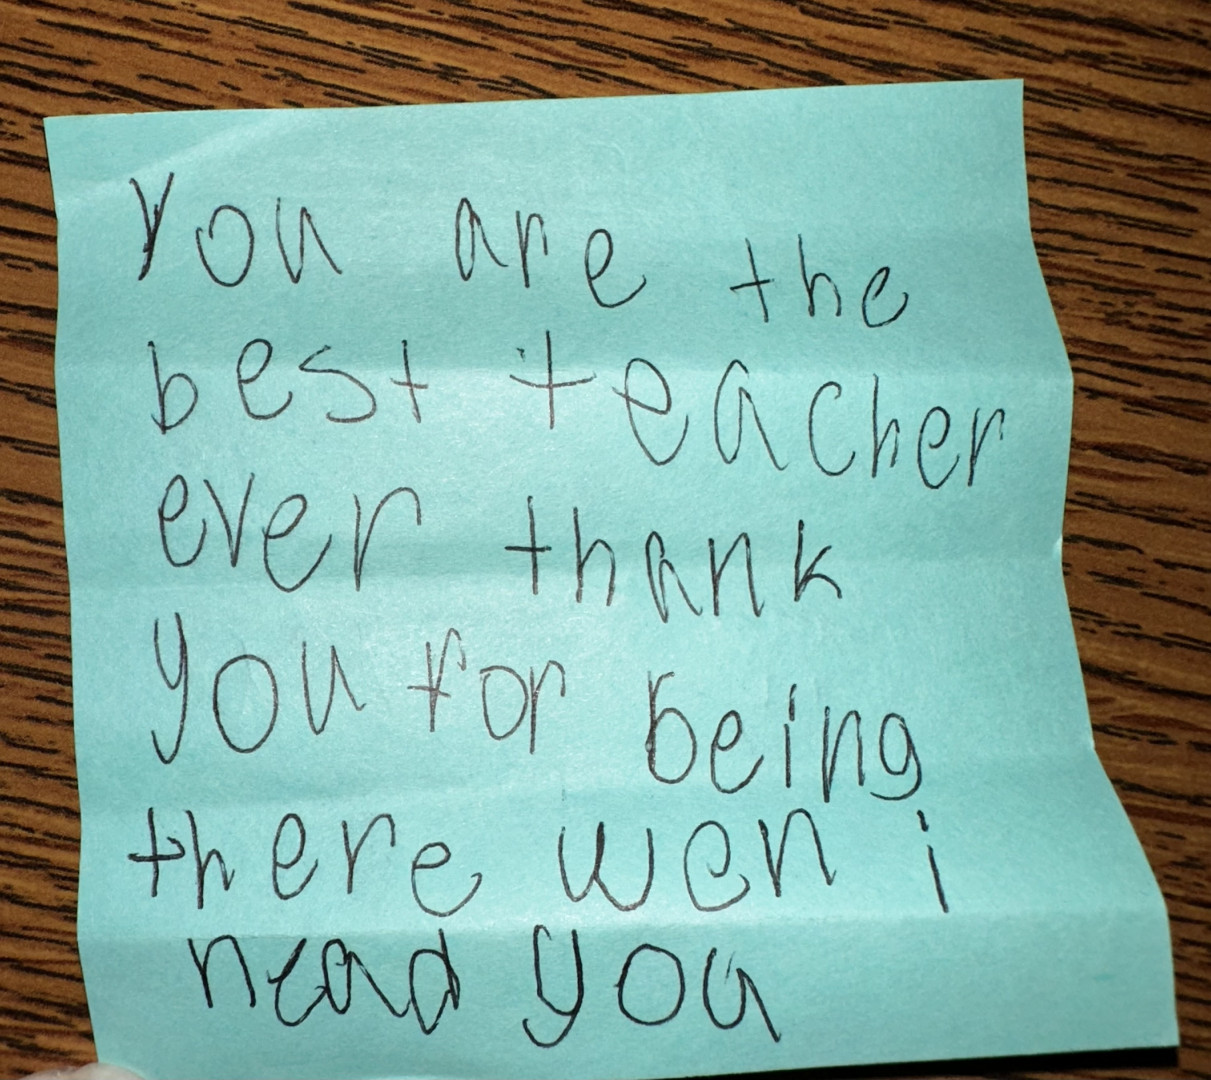 you are the
best teacher
ever thank
you for being
there wen i
nead you